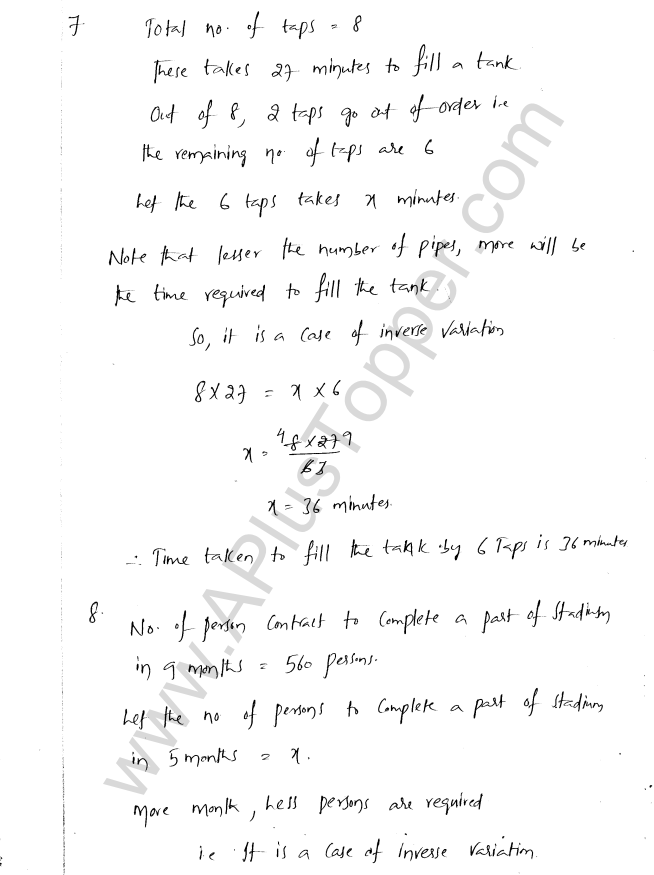 7 Total no. of taps = 8
These takes 27 minutes to fill a tank.
Out of 8, 2 taps go out of order i.e
the remaining no. of taps are 6
Let the 6 taps takes x minutes.
Note that lesser the number of pipes, more will be
the time required to fill the tank.
So, it is a case of inverse variation
8 x 27 = x x 6
x = 4 8 x 27 9 / 6 3
x = 36 minutes.
∴ Time taken to fill the tank by 6 Taps is 36 minutes
8. No. of person contract to complete a part of stadium
in 9 months = 560 persons.
Let the no of persons to complete a part of stadium
in 5 months = x.
more month, less persons are required
i.e It is a case of inverse variation.
www.APlusTopper.com